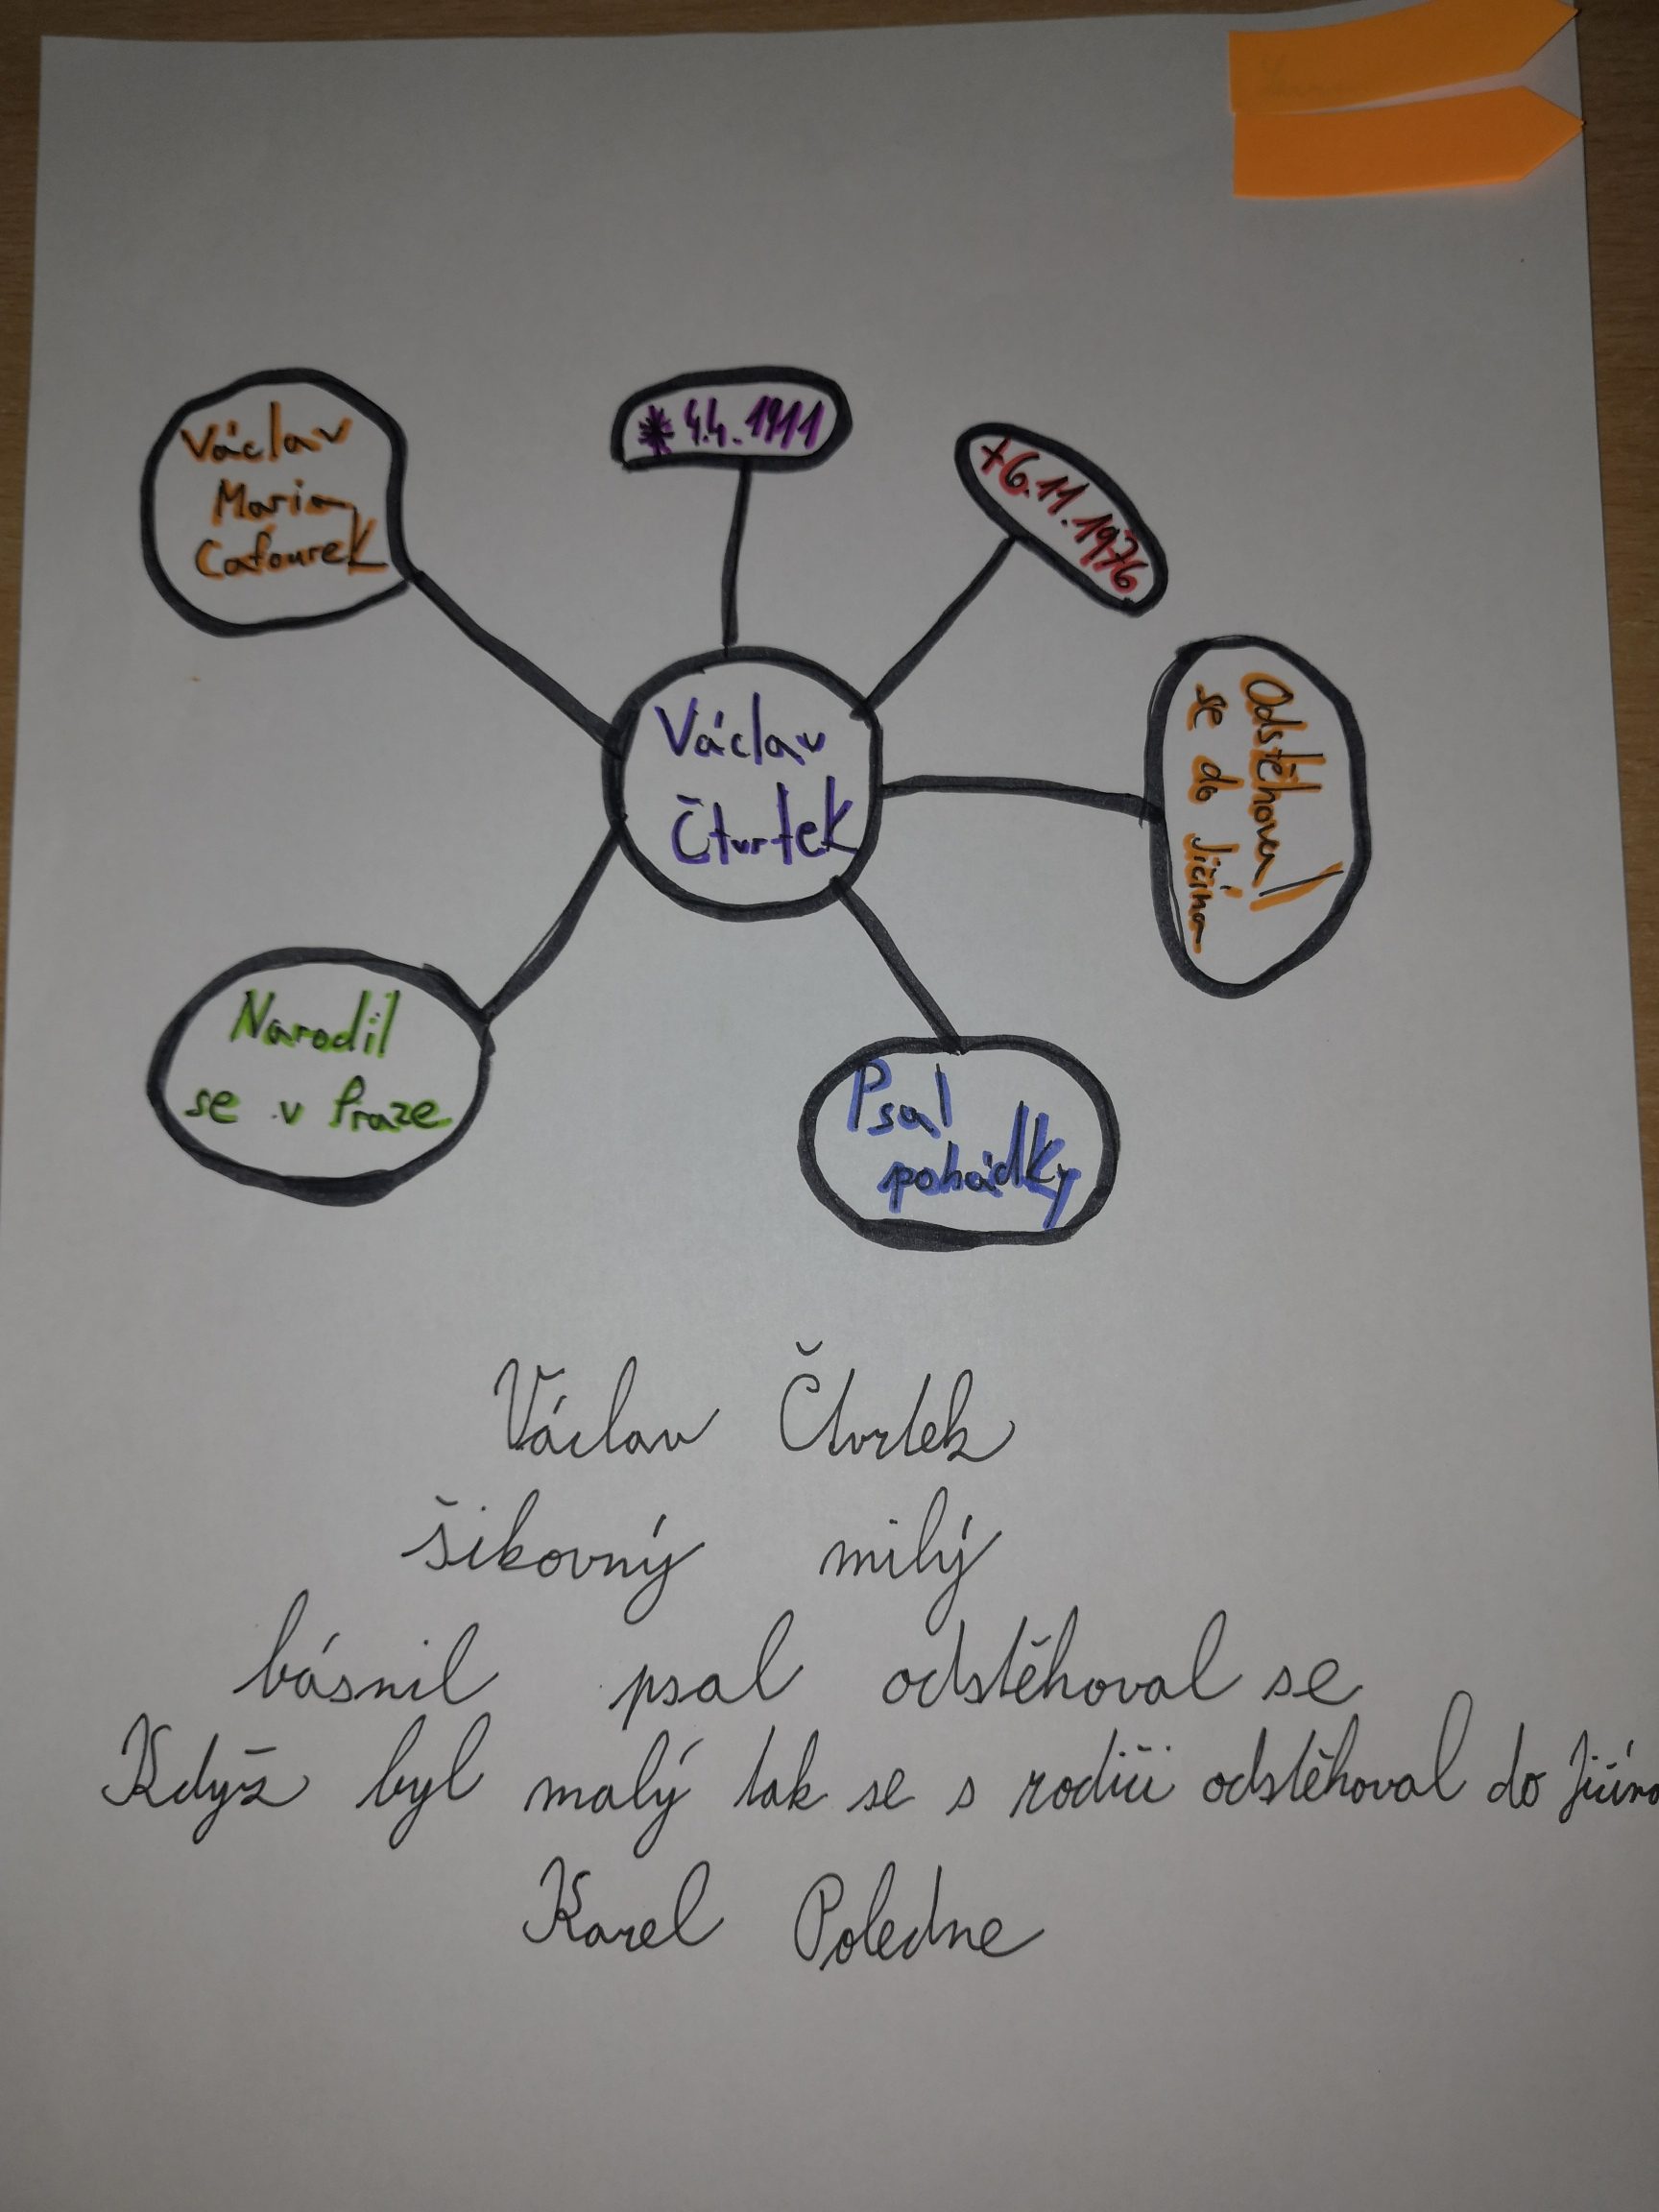 Václav
Maria
Cafourek
* 4.4. 1911
+6.11.1976
Václav
Čtvrtek
Odstěhoval
se do Jičína
Narodil
se v Praze
Psal
pohádky
Václav Čtvrtek
šikovný milý
básnil psal odstěhoval se
Když byl malý tak se s rodiči odstěhoval do Jičína
Karel Poledne